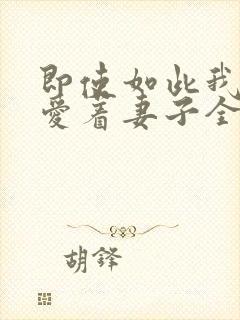 即使如此我
爱着妻子全
胡铎